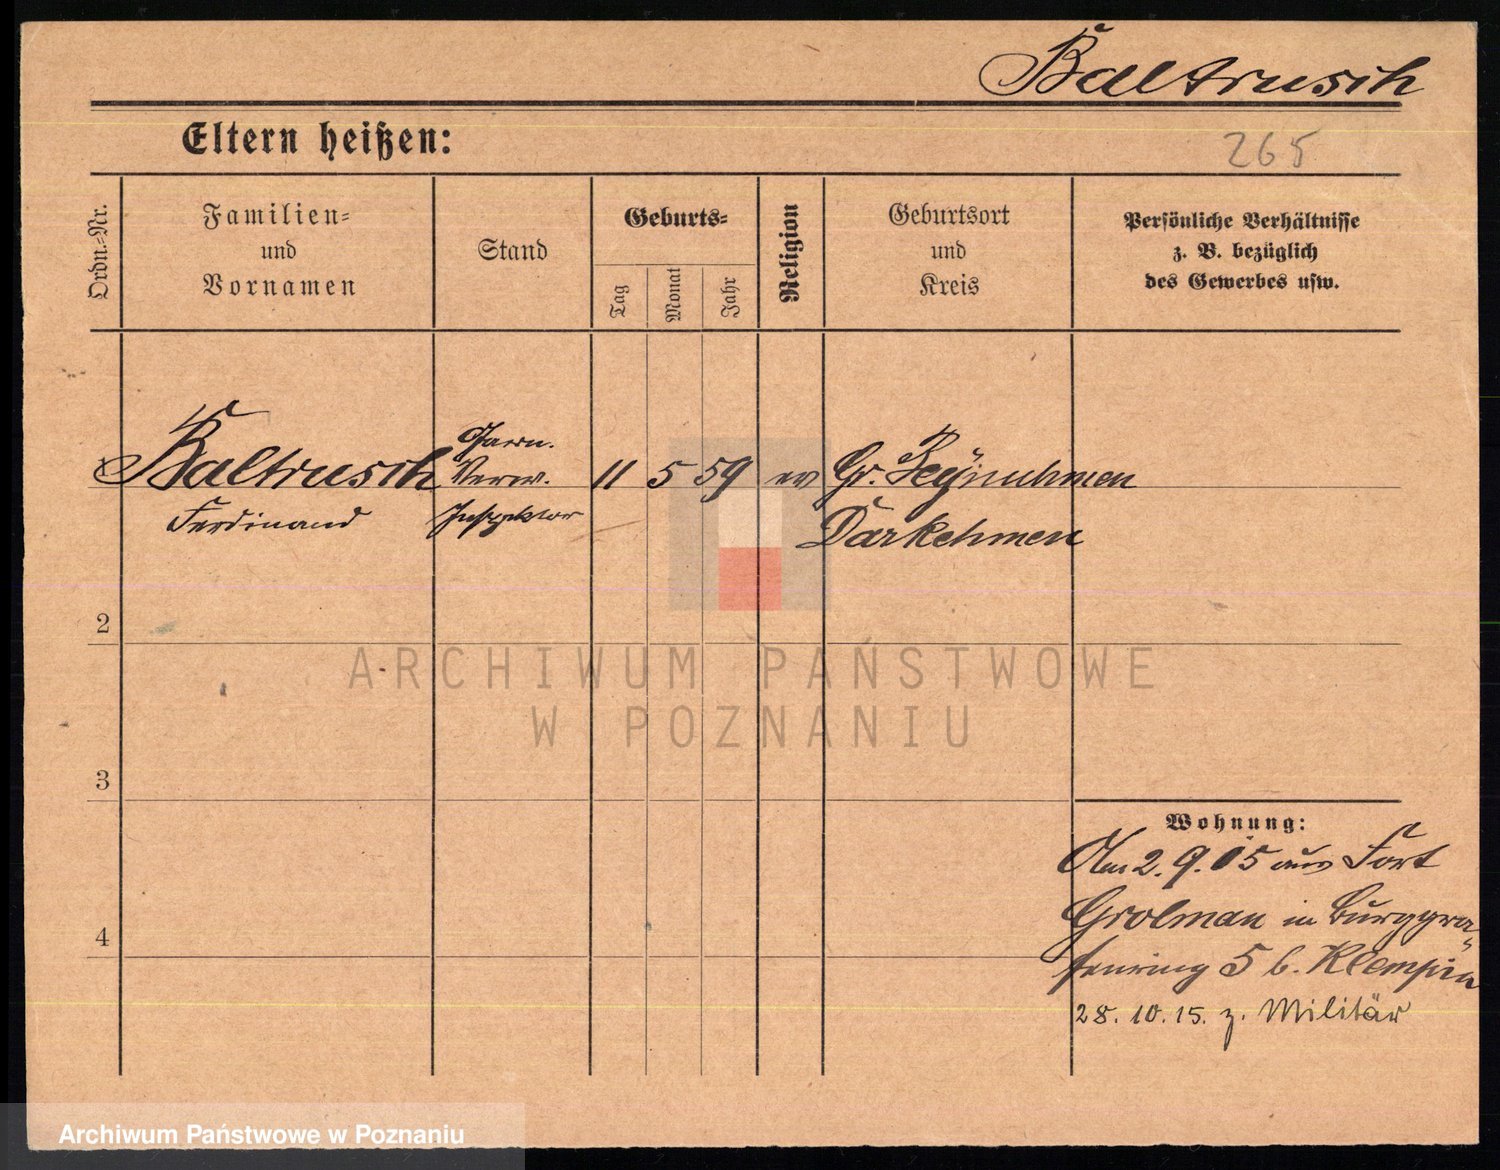 Baltrusch
Eltern heißen:
265
Ordn.-Nr.
Familien-
und
Vornamen
Stand
Geburts-
Tag
Monat
Jahr
Religion
Geburtsort
und
Kreis
Persönliche Verhältnisse
z. B. bezüglich
des Gewerbes usw.
Baltrusch
Ferdinand
Garn.
Verw.
Inspektor
11
5
59
ev
Gr. Beynuhmen
Darkehmen
2
3
4
ARCHIWUM PAŃSTWOWE
W POZNANIU
Wohnung:
Am 2. 9. 05 aus Fort
Grolman in Burggra
fenring 5 b. Klempin
28. 10. 15. z. Militär
Archiwum Państwowe w Poznaniu